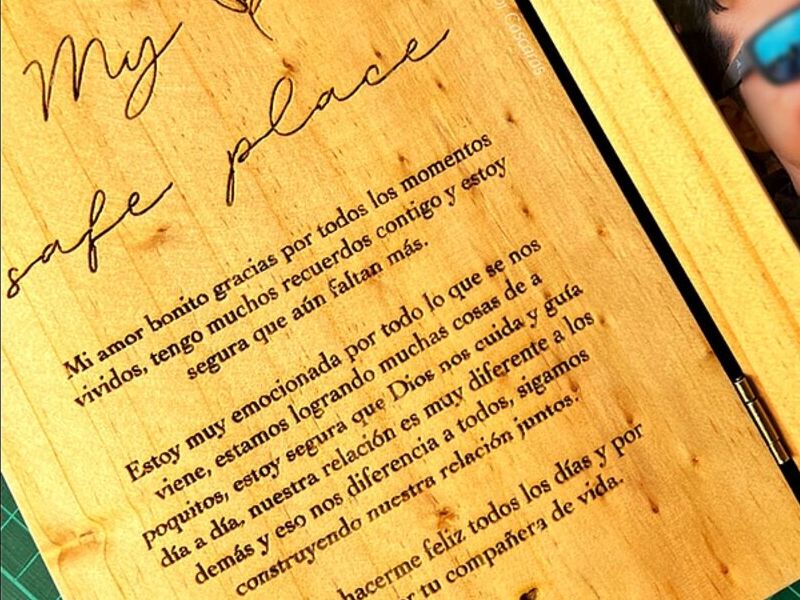 My
safe place
Mi amor bonito gracias por todos los momentos
vividos, tengo muchos recuerdos contigo y estoy
segura que aún faltan más.
Estoy muy emocionada por todo lo que se nos
viene, estamos logrando muchas cosas de a
poquitos, estoy segura que Dios nos cuida y guía
día a día, nuestra relación es muy diferente a los
demás y eso nos diferencia a todos, sigamos
construyendo nuestra relación juntos.
hacerme feliz todos los días y por
tu compañera de vida.